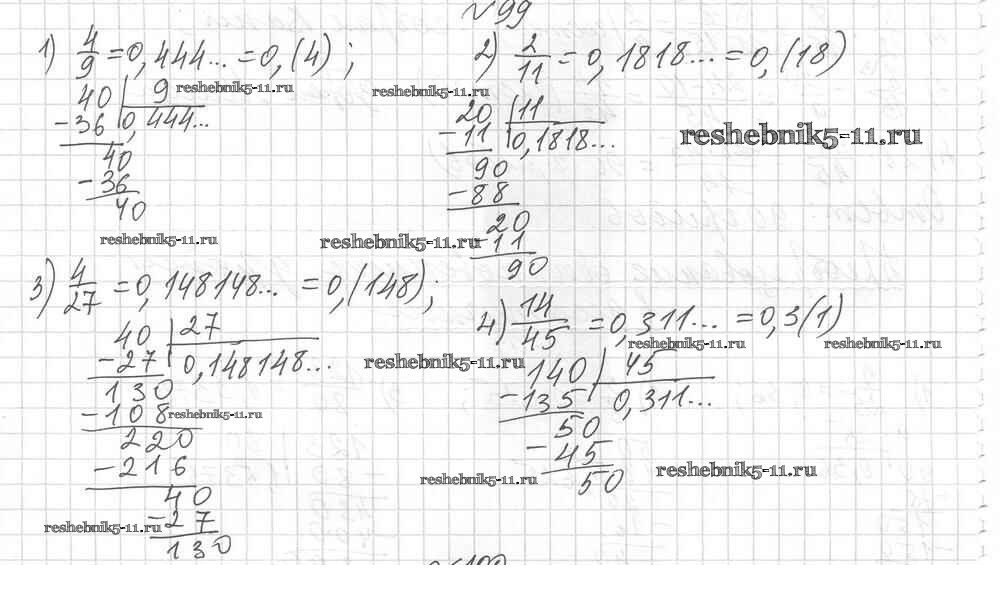 №99
1) 4/9 = 0,444... = 0,(4) ;
40 | 9
reshebnik5-11.ru
-36 0,444...
40
-36
40
reshebnik5-11.ru
2) 2/11 = 0,1818... = 0,(18)
reshebnik5-11.ru
20 | 11
-11 0,1818...
reshebnik5-11.ru
90
-88
20
reshebnik5-11.ru
-11
90
3) 4/27 = 0,148148... = 0,(148) ;
40 | 27
-27 0,148148...
reshebnik5-11.ru
130
-108
reshebnik5-11.ru
220
-216
40
reshebnik5-11.ru
-27
130
4) 14/45 = 0,311... = 0,3(1)
reshebnik5-11.ru
reshebnik5-11.ru
140 | 45
-135 0,311...
50
-45
reshebnik5-11.ru
reshebnik5-11.ru
50